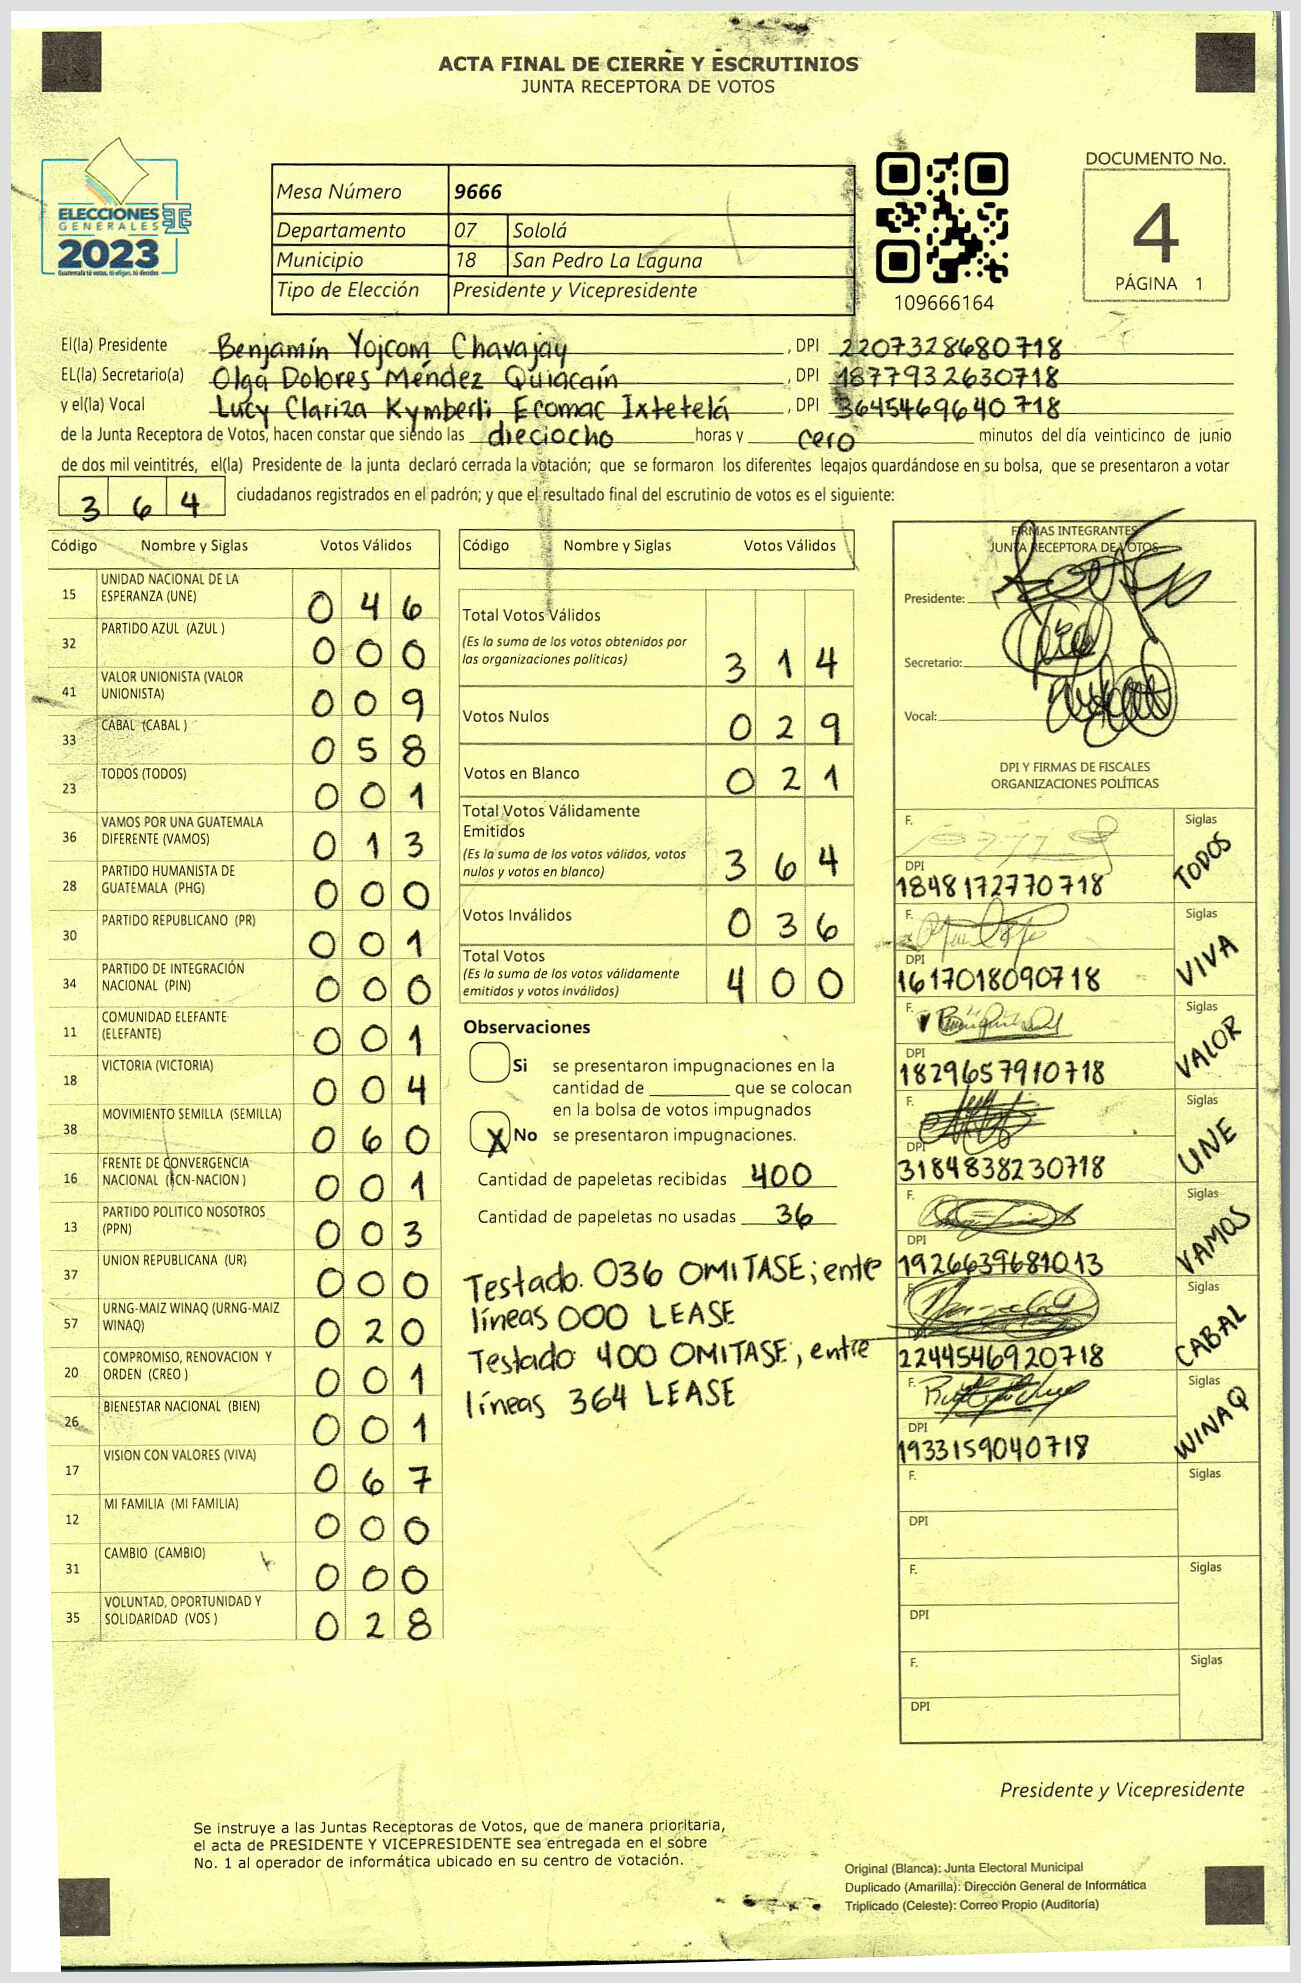 ACTA FINAL DE CIERRE Y ESCRUTINIOS
JUNTA RECEPTORA DE VOTOS
ELECCIONES
GENERALES
2023
Guatemala tú votas, tú eliges, tú decides
Mesa Número 9666
Departamento 07 Sololá
Municipio 18 San Pedro La Laguna
Tipo de Elección Presidente y Vicepresidente
109666164
DOCUMENTO No.
4
PÁGINA 1
El(la) Presidente Benjamín Yojcom Chavajay, DPI 2207328680718
EL(la) Secretario(a) Olga Dolores Méndez Quiacaín, DPI 1877932630718
y el(la) Vocal Lucy Clariza Kymberli Ecomac Ixtetelá, DPI 3645469640718
de la Junta Receptora de Votos, hacen constar que siendo las dieciocho horas y cero minutos del día veinticinco de junio
de dos mil veintitrés, el(la) Presidente de la junta declaró cerrada la votación; que se formaron los diferentes legajos guardándose en su bolsa, que se presentaron a votar
364 ciudadanos registrados en el padrón; y que el resultado final del escrutinio de votos es el siguiente:
Código Nombre y Siglas Votos Válidos
15 UNIDAD NACIONAL DE LA ESPERANZA (UNE) 046
32 PARTIDO AZUL (AZUL ) 000
41 VALOR UNIONISTA (VALOR UNIONISTA) 009
33 CABAL (CABAL ) 058
23 TODOS (TODOS) 001
36 VAMOS POR UNA GUATEMALA DIFERENTE (VAMOS) 013
28 PARTIDO HUMANISTA DE GUATEMALA (PHG) 000
30 PARTIDO REPUBLICANO (PR) 001
34 PARTIDO DE INTEGRACIÓN NACIONAL (PIN) 000
11 COMUNIDAD ELEFANTE (ELEFANTE) 001
18 VICTORIA (VICTORIA) 004
38 MOVIMIENTO SEMILLA (SEMILLA) 060
16 FRENTE DE CONVERGENCIA NACIONAL (FCN-NACION ) 001
13 PARTIDO POLITICO NOSOTROS (PPN) 003
37 UNION REPUBLICANA (UR) 000
57 URNG-MAIZ WINAQ (URNG-MAIZ WINAQ) 020
20 COMPROMISO, RENOVACION Y ORDEN (CREO ) 001
26 BIENESTAR NACIONAL (BIEN) 001
17 VISION CON VALORES (VIVA) 067
12 MI FAMILIA (MI FAMILIA) 000
31 CAMBIO (CAMBIO) 000
35 VOLUNTAD, OPORTUNIDAD Y SOLIDARIDAD (VOS ) 028
Código Nombre y Siglas Votos Válidos
Total Votos Válidos
(Es la suma de los votos obtenidos por
las organizaciones políticas) 314
Votos Nulos 029
Votos en Blanco 021
Total Votos Válidamente
Emitidos
(Es la suma de los votos válidos, votos
nulos y votos en blanco) 364
Votos Inválidos 036
Total Votos
(Es la suma de los votos válidamente
emitidos y votos inválidos) 400
Observaciones
Si se presentaron impugnaciones en la
cantidad de ________ que se colocan
en la bolsa de votos impugnados
X No se presentaron impugnaciones.
Cantidad de papeletas recibidas 400
Cantidad de papeletas no usadas 36
Testado. 036 OMITASE; ente
líneas 000 LEASE
Testado 400 OMITASE, entre
líneas 364 LEASE
FIRMAS INTEGRANTES
JUNTA RECEPTORA DE VOTOS
Presidente:
Secretario:
Vocal:
DPI Y FIRMAS DE FISCALES
ORGANIZACIONES POLÍTICAS
F. Siglas
DPI TODOS
1848172770718
F. Siglas
DPI VIVA
1617018090718
F. Siglas
DPI VALOR
1829657910718
F. Siglas
DPI UNE
3184838230718
F. Siglas
DPI VAMOS
1926639681013
Siglas
CABAL
2244546920718
F. Siglas
DPI WINAQ
1933159040718
F. Siglas
DPI
F. Siglas
DPI
F. Siglas
DPI
Presidente y Vicepresidente
Se instruye a las Juntas Receptoras de Votos, que de manera prioritaria,
el acta de PRESIDENTE Y VICEPRESIDENTE sea entregada en el sobre
No. 1 al operador de informática ubicado en su centro de votación.
Original (Blanca): Junta Electoral Municipal
Duplicado (Amarilla): Dirección General de Informática
Triplicado (Celeste): Correo Propio (Auditoría)